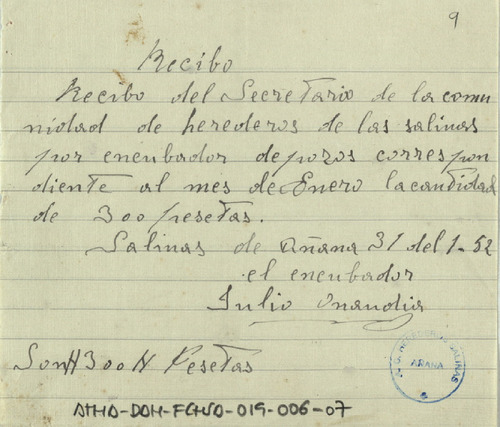 9
Recibo
Recibo del Secretario de la comu
nidad de herederos de las salinas
por encubador de pozos correspon
diente al mes de Enero la cantidad
de 300 pesetas.
Salinas de Añana 31 del 1-52
el encubador
Julio Onandia
Son # 300 # Pesetas
HEREDEROS SALINAS
AÑANA
ATHA-DAH-FGHSA-019-006-07